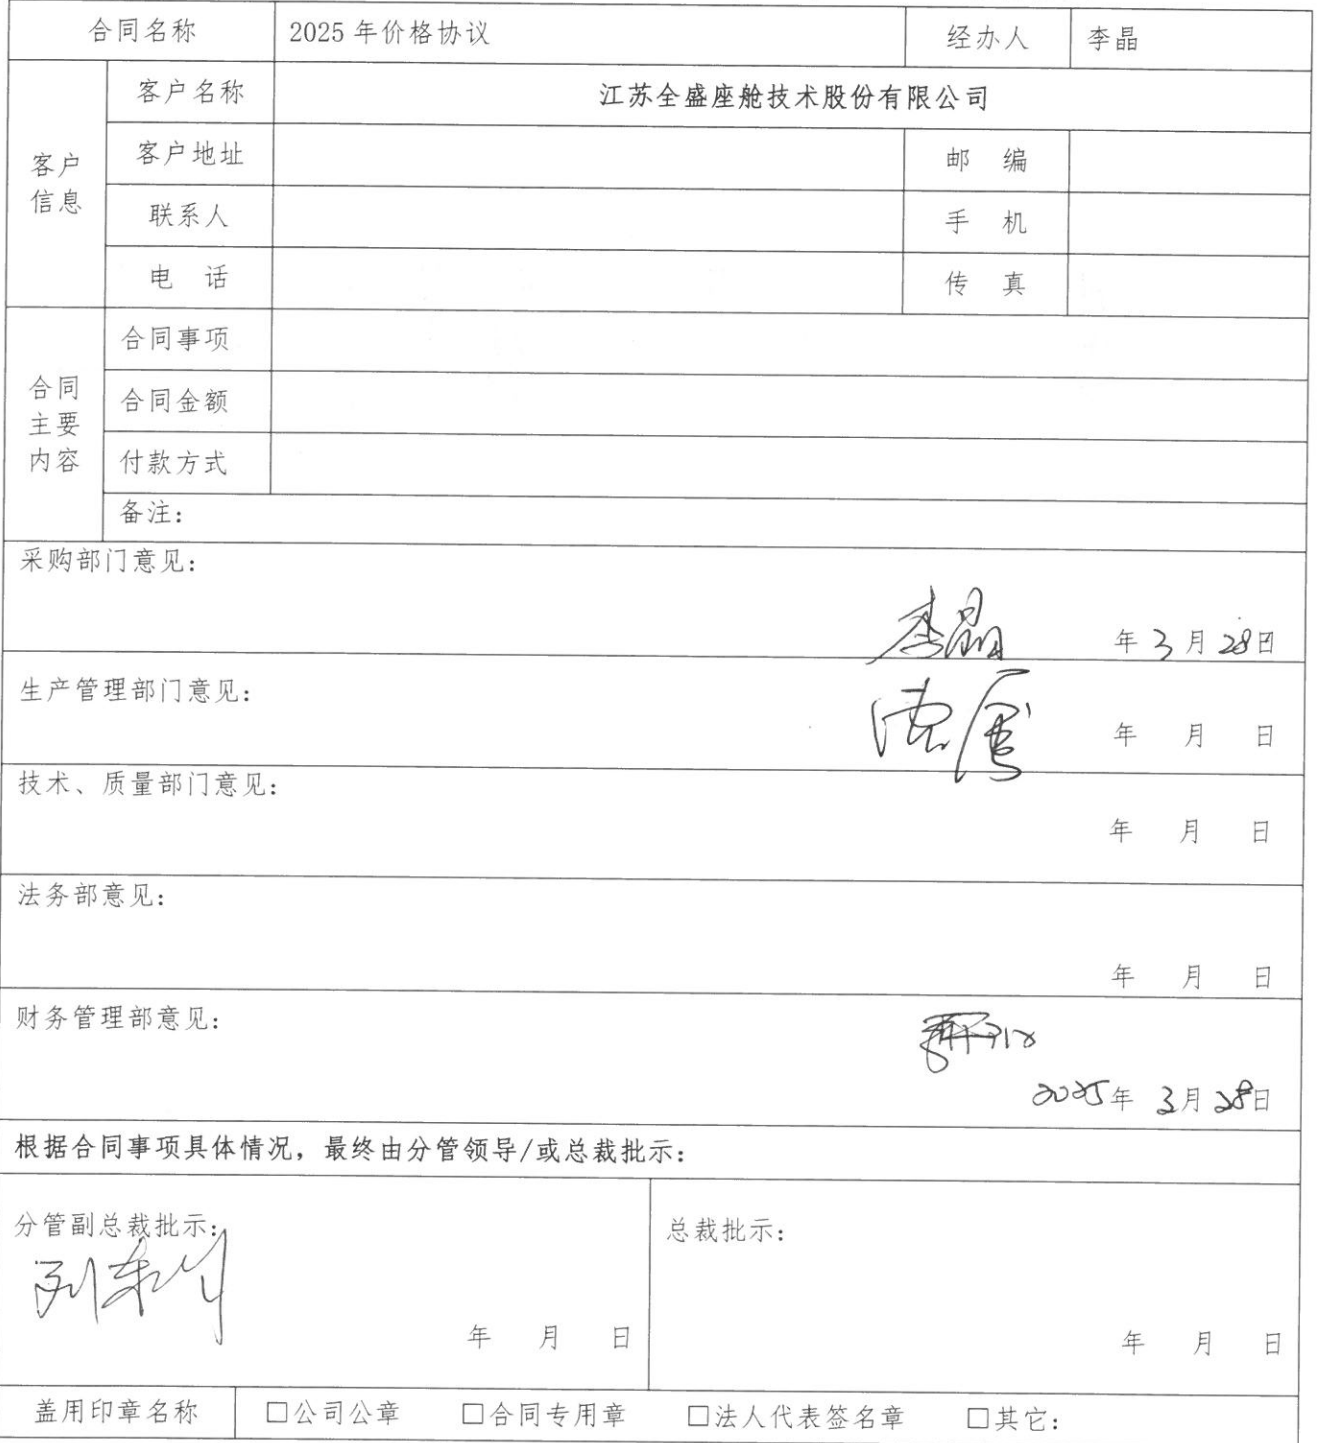 合同名称 2025 年价格协议 经办人 李晶
客户信息
客户名称 江苏全盛座舱技术股份有限公司
客户地址 邮 编
联系人 手 机
电 话 传 真
合同主要内容
合同事项
合同金额
付款方式
备注：
采购部门意见：
李晶 年 3 月 28 日
生产管理部门意见：
年 月 日
技术、质量部门意见：
年 月 日
法务部意见：
年 月 日
财务管理部意见：
2025 年 3 月 28 日
根据合同事项具体情况，最终由分管领导/或总裁批示：
分管副总裁批示： 总裁批示：
年 月 日 年 月 日
盖用印章名称 □公司公章 □合同专用章 □法人代表签名章 □其它：